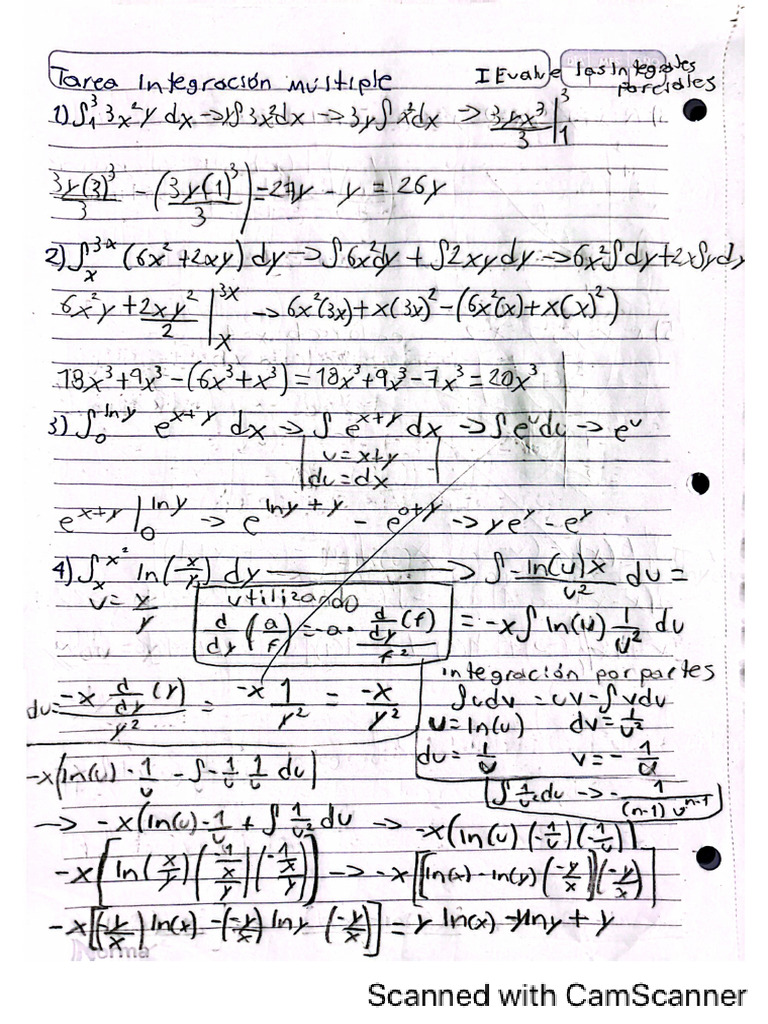 Tarea Integración Multiple I Evalue las integrales parciales
1) ∫₁³ 3x²y dx → y∫3x²dx → 3y∫x²dx → 3yx³/3 |₁³
3y(3)³/3 - (3y(1)³/3) = 27y - y = 26y
2) ∫ₓ³ˣ (6x² + 2xy) dy → ∫6x²dy + ∫2xydy → 6x²∫dy + 2x∫ydy
6x²y + 2xy²/2 |ₓ³ˣ → 6x²(3x) + x(3x)² - (6x²(x) + x(x)²)
18x³ + 9x³ - (6x³ + x³) = 18x³ + 9x³ - 7x³ = 20x³
3) ∫₀^(ln y) e^(x+y) dx → ∫ e^(x+y) dx → ∫ e^u du → e^u
u = x+y
du = dx
e^(x+y) |₀^(ln y) → e^(ln y + y) - e^(0+y) → ye^y - e^y
4) ∫ₓ^(x²) ln(x/y) dy → ∫ -ln(u)x/u² du =
u = x/y
utilizando
d/dy (a/f) = -a · (d/dy (f))/f²
= -x ∫ ln(u) 1/u² du
du = (-x d/dy (y))/y² = -x 1/y² = -x/y²
integración por partes
∫udv = uv - ∫vdu
u = ln(u) dv = 1/u²
du = 1/u v = - 1/u
∫ 1/uⁿ du → - 1/((n-1) u^(n-1))
-x(ln(u) · 1/u - ∫ - 1/u 1/u du)
→ -x(ln(u) · 1/u + ∫ 1/u² du → -x(ln(u) (-1/u) (-1/u))
-x[ln(x/y) (-1/(x/y)) (-1/(x/y))] → -x[ln(x) - ln(y) (-y/x)] (-y/x)]
-x[(-y/x) ln(x) - (-y/x) ln y (-y/x)] = y ln(x) - y ln y + y
Norma
Scanned with CamScanner